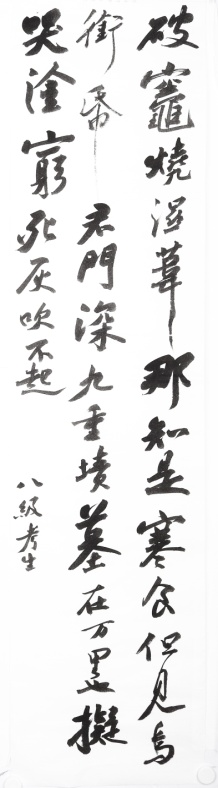 破竈燒溼葦那知是寒食但見烏
銜帋君門深九重墳墓在万里也擬
哭塗窮死灰吹不起
八級考生